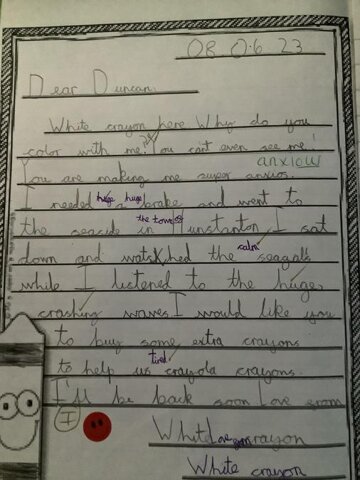 08.06.23
Dear Duncan,
White crayon here Why do you
color with me? You can't even see me!
anxiou
You are making me super anxios.
huge huge
I needed a brake and went to
the town
the seaside in Hunstanton. I sat
calm
down and watshed the seagalls
while I listened to the huge,
crashing waves. I would like you
to buy some extra crayons
tired
to help us crayola crayons.
I'll be back soon Love from
I
White crayon
Love from
White crayon